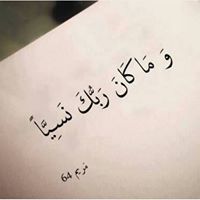 وَ مَا كَانَ رَبُّكَ نَسِيَّاً
مريم 64